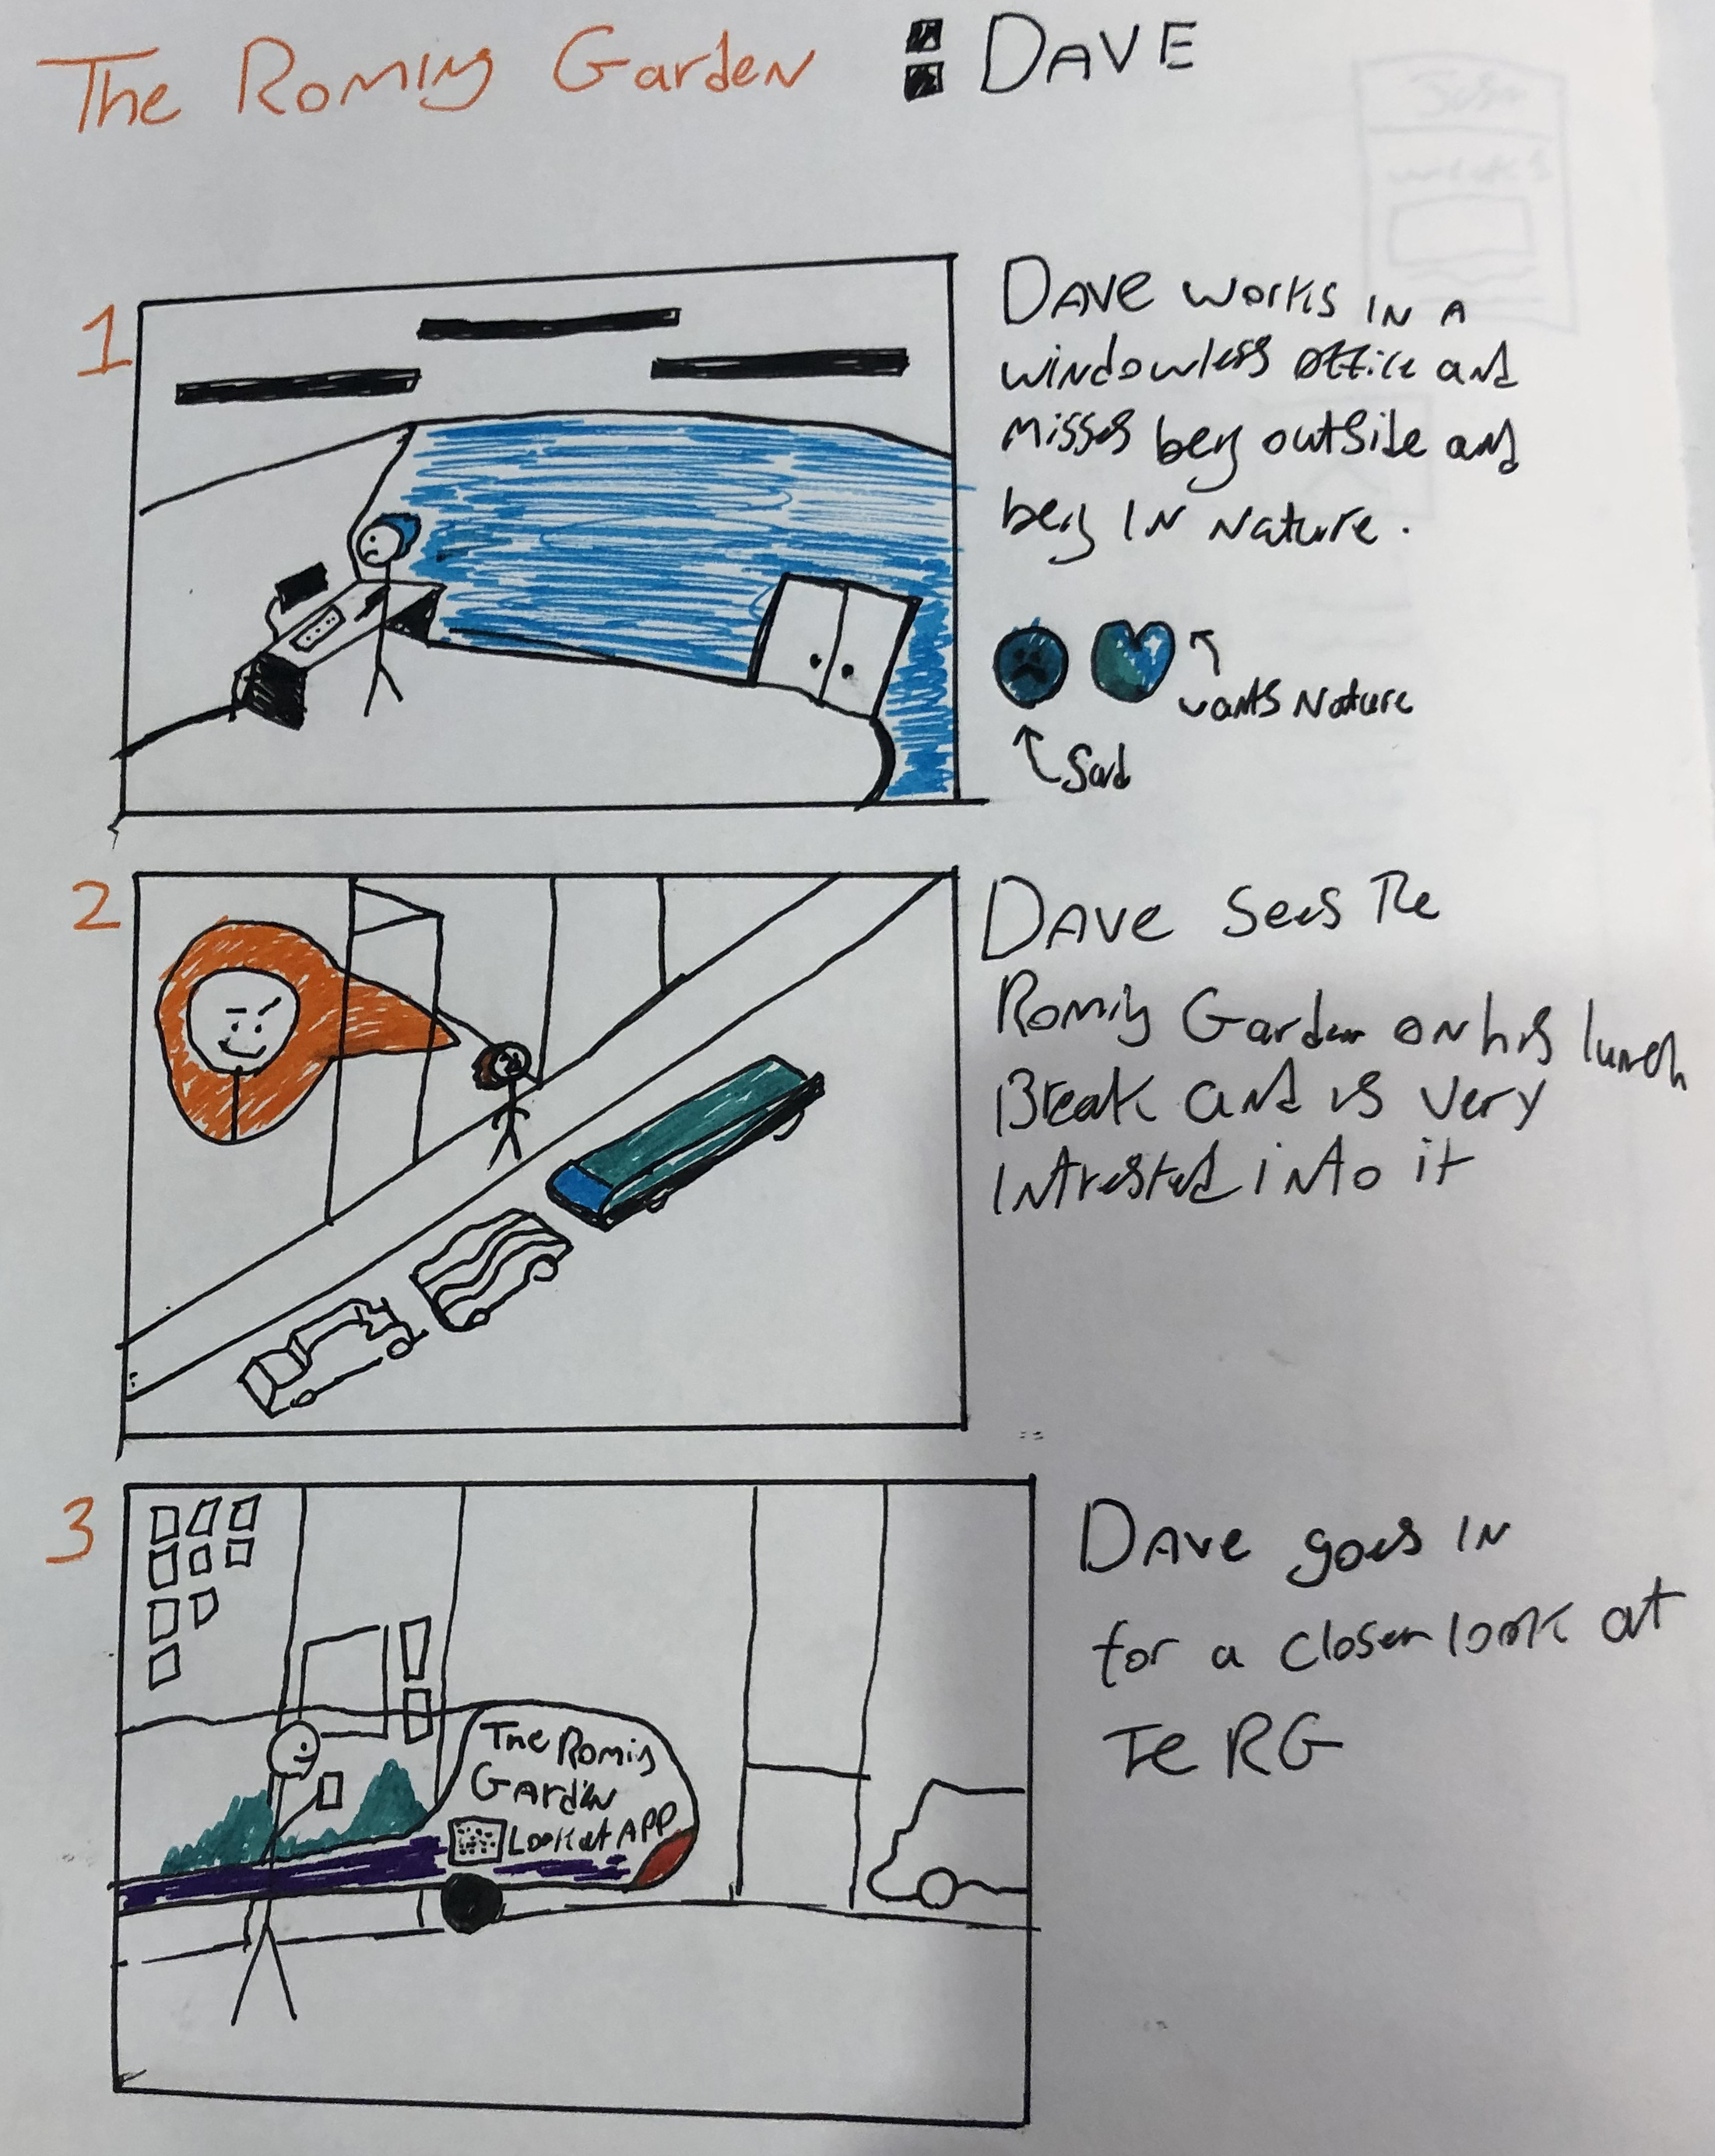 The Roming Garden : DAVE
1
DAVE works IN A
windowless office and
misses beng outside and
beng IN Nature.
wants Nature
Sad
2
DAVE sees The
Roming Garden on his lunch
Break and is very
Intrested into it
3
The Roming
GArden
Look at APP
DAve goes IN
for a closer look at
Te RG